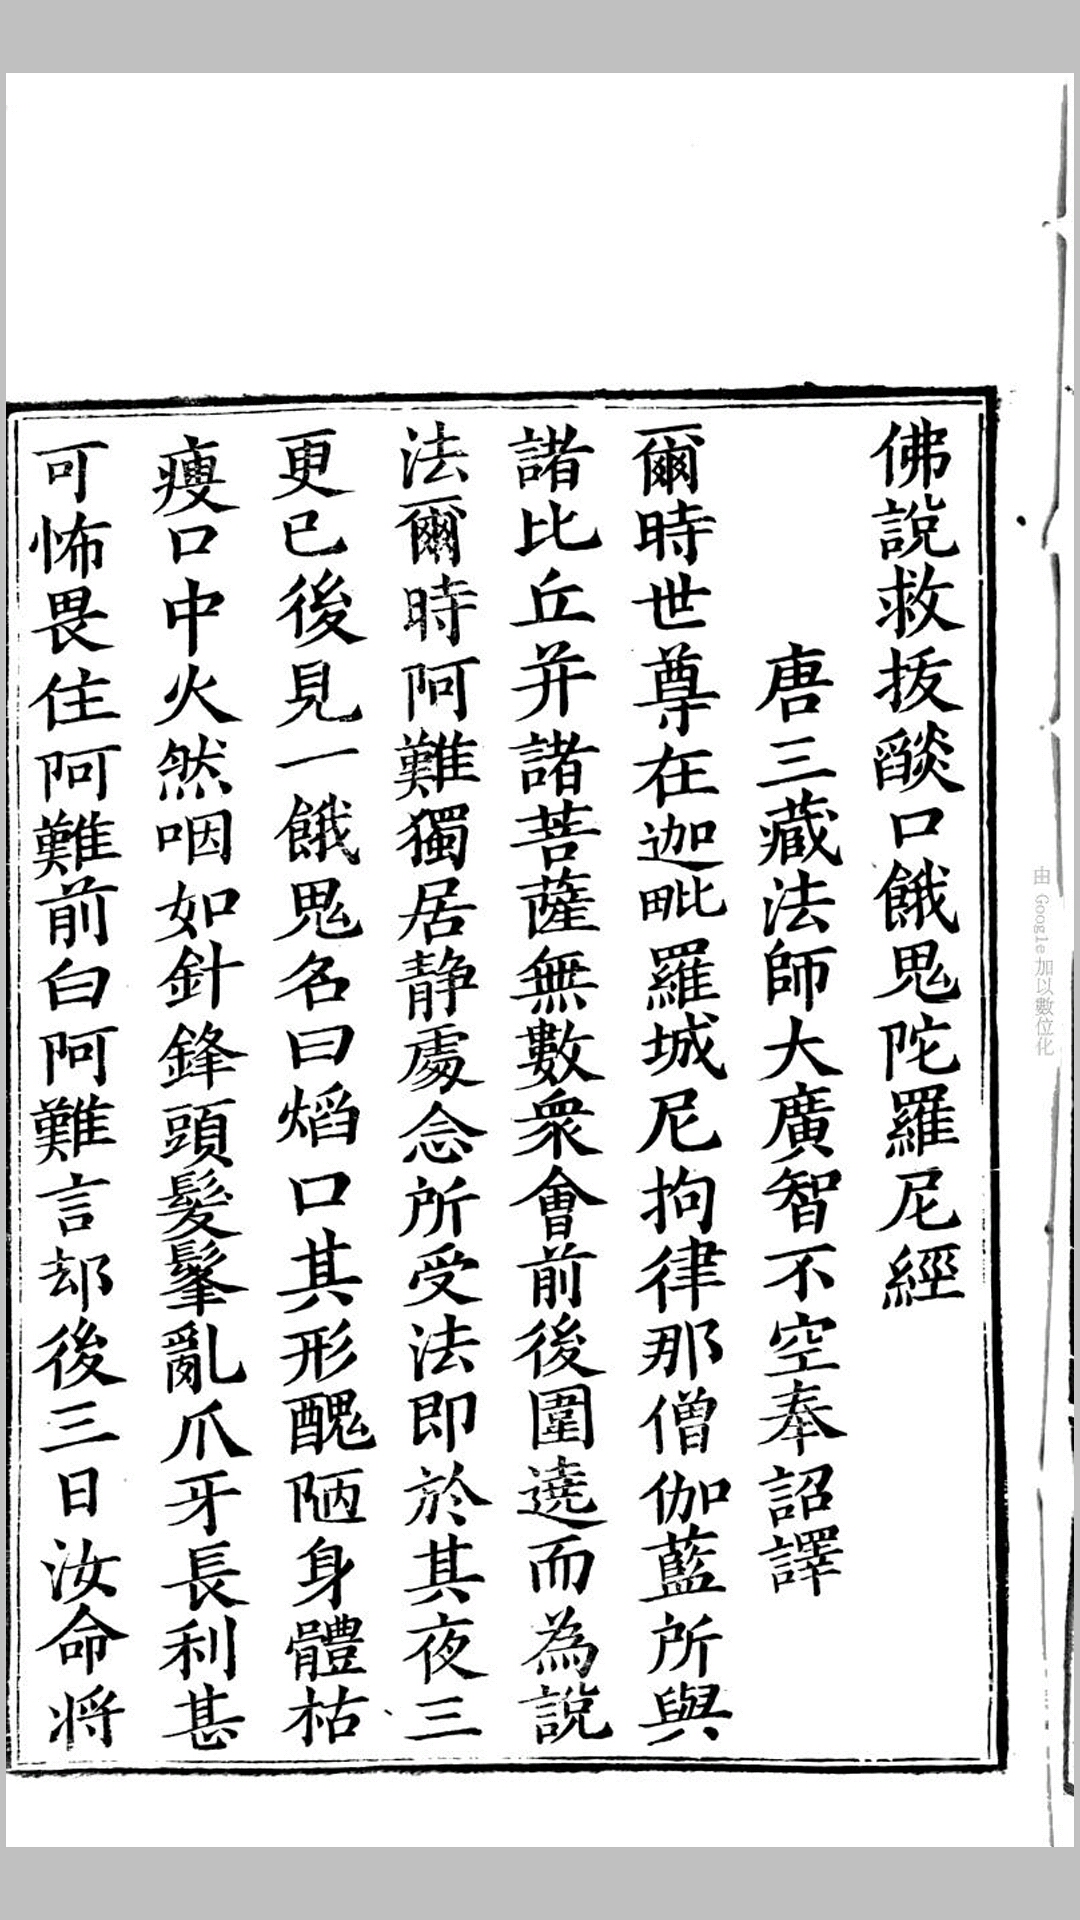 佛說救拔燄口餓鬼陀羅尼經
唐三藏法師大廣智不空奉詔譯
爾時世尊在迦毗羅城尼拘律那僧伽藍所與
諸比丘并諸菩薩無數衆會前後圍遶而為說
法爾時阿難獨居静處念所受法即於其夜三
更已後見一餓鬼名曰焰口其形醜陋身體枯
瘦口中火然咽如針鋒頭髮髼亂爪牙長利甚
可怖畏住阿難前白阿難言却後三日汝命将
由 Google 加以數位化